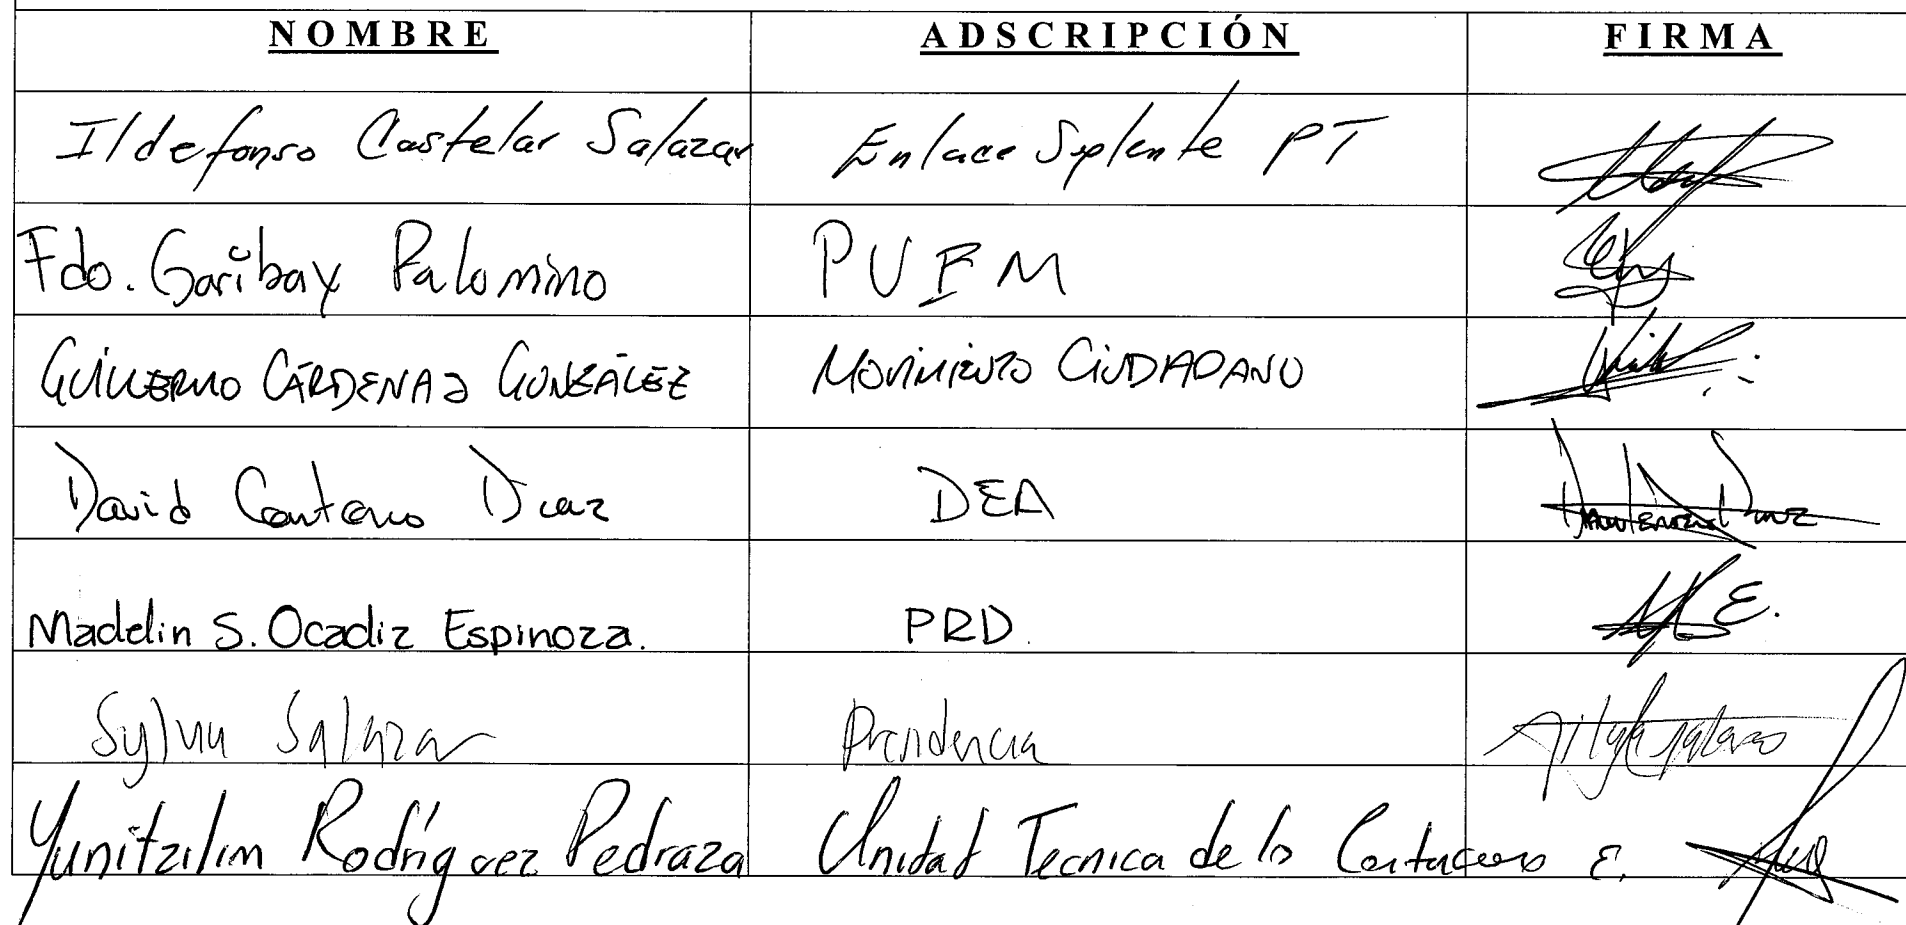 NOMBRE ADSCRIPCIÓN FIRMA
Ildefonso Castelar Salazar Enlace Suplente PT
Fdo. Garibay Palomino PVEM
GUILLERMO CÁRDENAS GONZÁLEZ MOVIMIENTO CIUDADANO
David Díaz DEA
Madelin S. Ocadiz Espinoza. PRD.
Sylvia Salazar Presidencia
Yunitzilim Rodríguez Pedraza Unidad Tecnica de lo E.